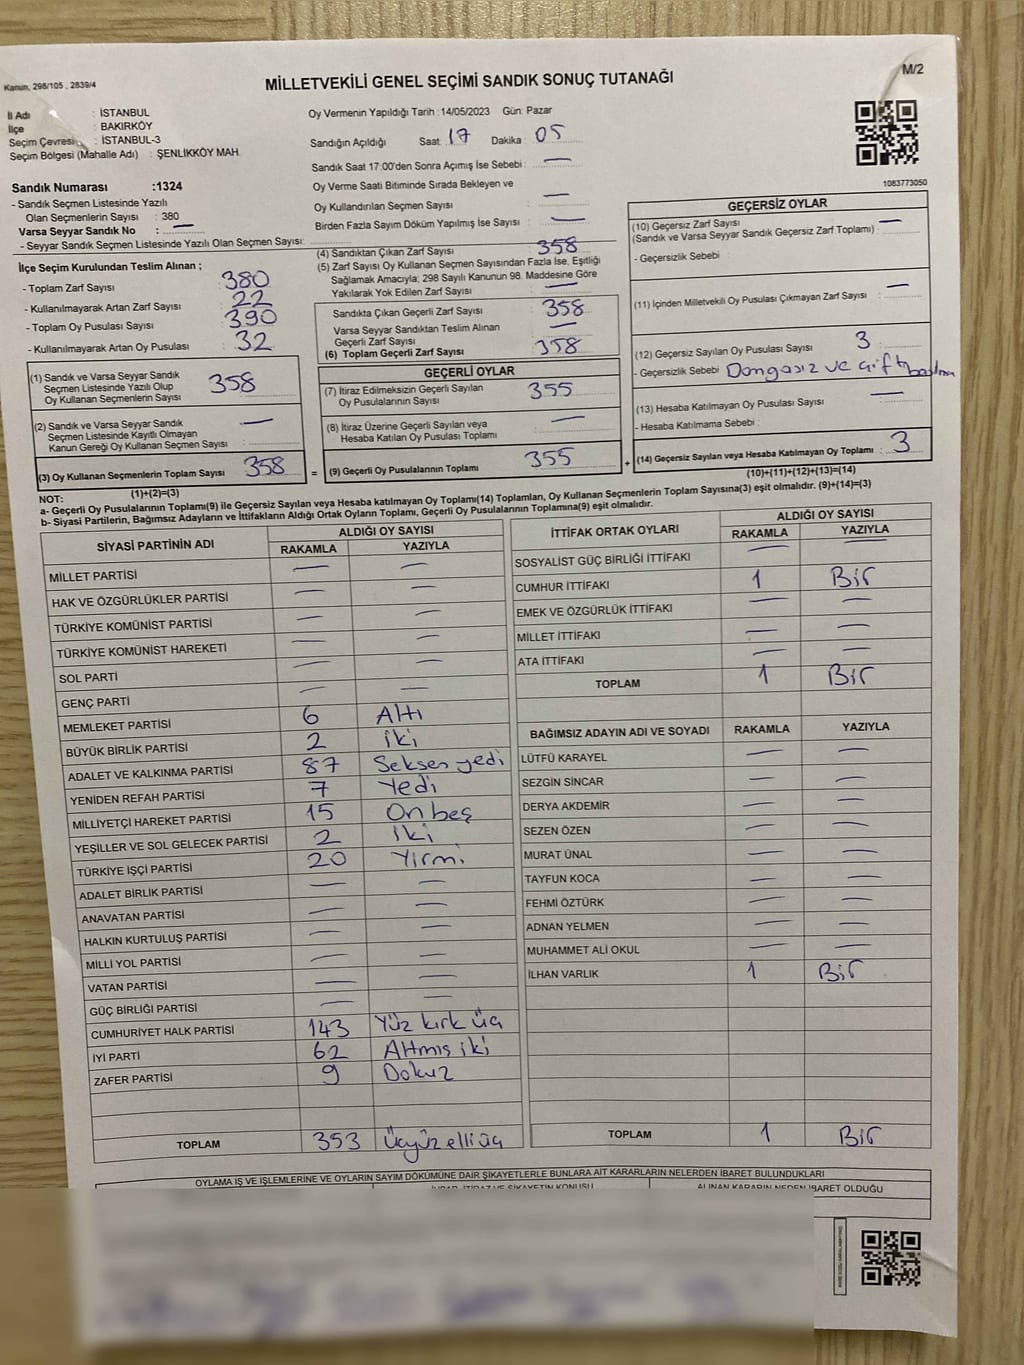 Kanun, 298/105 , 2839/4
MİLLETVEKİLİ GENEL SEÇİMİ SANDIK SONUÇ TUTANAĞI
M/2
İl Adı : İSTANBUL
İlçe : BAKIRKÖY
Seçim Çevresi : İSTANBUL-3
Seçim Bölgesi (Mahalle Adı) : ŞENLİKKÖY MAH.
Oy Vermenin Yapıldığı Tarih : 14/05/2023 Gün: Pazar
Sandığın Açıldığı Saat 17 Dakika 05
Sandık Saat 17:00'den Sonra Açımış İse Sebebi : —
Oy Verme Saati Bitiminde Sırada Bekleyen ve
Oy Kullandırılan Seçmen Sayısı : —
Birden Fazla Sayım Döküm Yapılmış İse Sayısı : —
1083773050
Sandık Numarası :1324
- Sandık Seçmen Listesinde Yazılı
Olan Seçmenlerin Sayısı : 380
Varsa Seyyar Sandık No : —
- Seyyar Sandık Seçmen Listesinde Yazılı Olan Seçmen Sayısı:
İlçe Seçim Kurulundan Teslim Alınan ;
- Toplam Zarf Sayısı : 380
- Kullanılmayarak Artan Zarf Sayısı : 22
- Toplam Oy Pusulası Sayısı : 390
- Kullanılmayarak Artan Oy Pusulası : 32
(1) Sandık ve Varsa Seyyar Sandık
Seçmen Listesinde Yazılı Olup
Oy Kullanan Seçmenlerin Sayısı : 358
(2) Sandık ve Varsa Seyyar Sandık
Seçmen Listesinde Kayıtlı Olmayan
Kanun Gereği Oy Kullanan Seçmen Sayısı : —
(3) Oy Kullanan Seçmenlerin Toplam Sayısı : 358
(1)+(2)=(3)
(4) Sandıktan Çıkan Zarf Sayısı : 358
(5) Zarf Sayısı Oy Kullanan Seçmen Sayısından Fazla İse, Eşitliği
Sağlamak Amacıyla; 298 Sayılı Kanunun 98. Maddesine Göre
Yakılarak Yok Edilen Zarf Sayısı : —
Sandıkta Çıkan Geçerli Zarf Sayısı : 358
Varsa Seyyar Sandıktan Teslim Alınan
Geçerli Zarf Sayısı : —
(6) Toplam Geçerli Zarf Sayısı : 358
GEÇERLİ OYLAR
(7) İtiraz Edilmeksizin Geçerli Sayılan
Oy Pusulalarının Sayısı : 355
(8) İtiraz Üzerine Geçerli Sayılan veya
Hesaba Katılan Oy Pusulası Toplamı : —
= (9) Geçerli Oy Pusulalarının Toplamı : 355 +
GEÇERSİZ OYLAR
(10) Geçersiz Zarf Sayısı
(Sandık ve Varsa Seyyar Sandık Geçersiz Zarf Toplamı) : —
- Geçersizlik Sebebi :
(11) İçinden Milletvekili Oy Pusulası Çıkmayan Zarf Sayısı : —
(12) Geçersiz Sayılan Oy Pusulası Sayısı : 3
- Geçersizlik Sebebi : Damgasız ve çift
(13) Hesaba Katılmayan Oy Pusulası Sayısı : —
- Hesaba Katılmama Sebebi :
(14) Geçersiz Sayılan veya Hesaba Katılmayan Oy Toplamı : 3
(10)+(11)+(12)+(13)=(14)
NOT:
a- Geçerli Oy Pusulalarının Toplamı(9) ile Geçersiz Sayılan veya Hesaba katılmayan Oy Toplamı(14) Toplamları, Oy Kullanan Seçmenlerin Toplam Sayısına(3) eşit olmalıdır. (9)+(14)=(3)
b- Siyasi Partilerin, Bağımsız Adayların ve İttifakların Aldığı Ortak Oyların Toplamı, Geçerli Oy Pusulalarının Toplamına(9) eşit olmalıdır.
SİYASİ PARTİNİN ADI ALDIĞI OY SAYISI
RAKAMLA YAZIYLA
MİLLET PARTİSİ — —
HAK VE ÖZGÜRLÜKLER PARTİSİ — —
TÜRKİYE KOMÜNİST PARTİSİ — —
TÜRKİYE KOMÜNİST HAREKETİ — —
SOL PARTİ — —
GENÇ PARTİ — —
MEMLEKET PARTİSİ 6 Altı
BÜYÜK BİRLİK PARTİSİ 2 iki
ADALET VE KALKINMA PARTİSİ 87 Seksen yedi
YENİDEN REFAH PARTİSİ 7 Yedi
MİLLİYETÇİ HAREKET PARTİSİ 15 On beş
YEŞİLLER VE SOL GELECEK PARTİSİ 2 İki
TÜRKİYE İŞÇİ PARTİSİ 20 Yirmi
ADALET BİRLİK PARTİSİ — —
ANAVATAN PARTİSİ — —
HALKIN KURTULUŞ PARTİSİ — —
MİLLİ YOL PARTİSİ — —
VATAN PARTİSİ — —
GÜÇ BİRLİĞİ PARTİSİ — —
CUMHURİYET HALK PARTİSİ 143 Yüz kırk üç
İYİ PARTİ 62 Altmış iki
ZAFER PARTİSİ 9 Dokuz
TOPLAM 353 Üçyüz elli üç
İTTİFAK ORTAK OYLARI ALDIĞI OY SAYISI
RAKAMLA YAZIYLA
SOSYALİST GÜÇ BİRLİĞİ İTTİFAKI — —
CUMHUR İTTİFAKI 1 Bir
EMEK VE ÖZGÜRLÜK İTTİFAKI — —
MİLLET İTTİFAKI — —
ATA İTTİFAKI — —
TOPLAM 1 Bir
BAĞIMSIZ ADAYIN ADI VE SOYADI RAKAMLA YAZIYLA
LÜTFÜ KARAYEL — —
SEZGİN SİNCAR — —
DERYA AKDEMİR — —
SEZEN ÖZEN — —
MURAT ÜNAL — —
TAYFUN KOCA — —
FEHMİ ÖZTÜRK — —
ADNAN YELMEN — —
MUHAMMET ALİ OKUL — —
İLHAN VARLIK 1 Bir
TOPLAM 1 Bir
OYLAMA İŞ VE İŞLEMLERİNE VE OYLARIN SAYIM DÖKÜMÜNE DAİR ŞİKAYETLERLE BUNLARA AİT KARARLARIN NELERDEN İBARET BULUNDUKLARI
İHBAR, İTİRAZ VE ŞİKAYETİN KONUSU ALINAN KARARIN NEDEN İBARET OLDUĞU